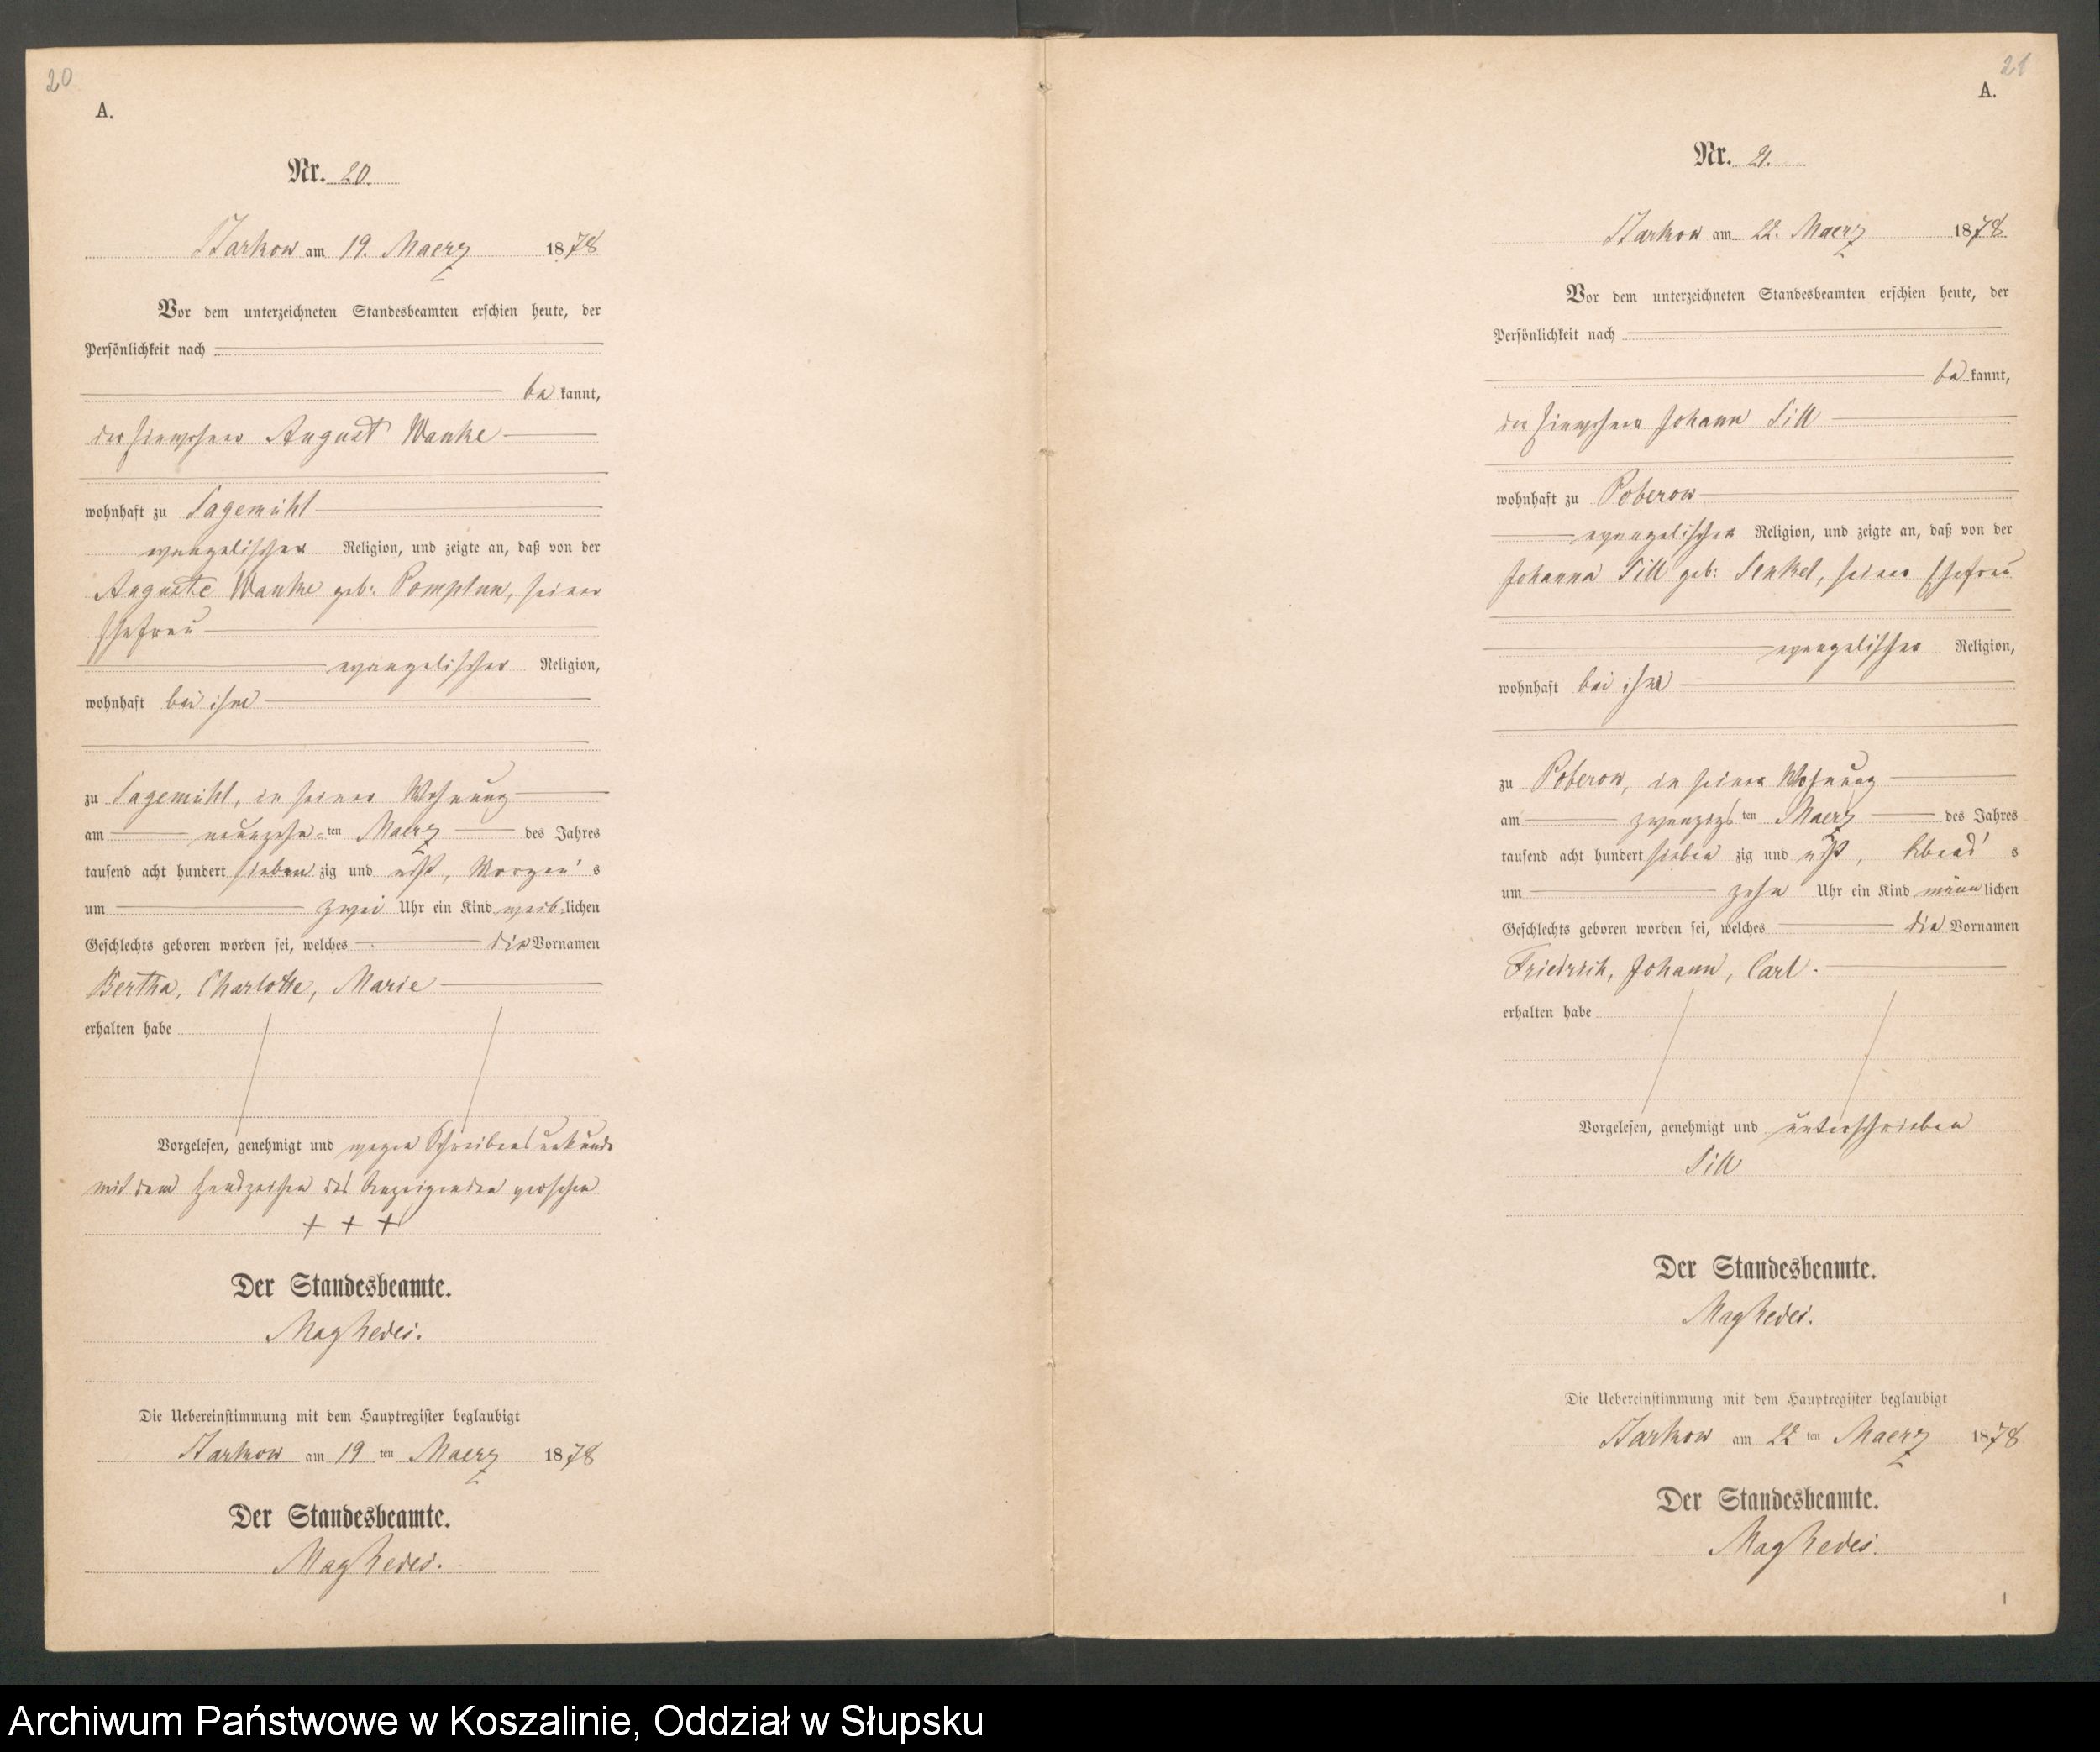 20
A.
Nr. 20.
Starkow am 19. Maerz 1878
Vor dem unterzeichneten Standesbeamten erschien heute, der
Persönlichkeit nach
be kannt,
der Einwohner August Wanke
wohnhaft zu Sagemühl
evangelischer Religion, und zeigte an, daß von der
Auguste Wanke geb: Pomplun, seiner
Ehefrau
evangelischer Religion,
wohnhaft bei ihm
zu Sagemühl, in seiner Wohnung
am neunzehn-ten Maerz des Jahres
tausend acht hundert sieben zig und acht, Morgen's
um zwei Uhr ein Kind weib-lichen
Geschlechts geboren worden sei, welches die Vornamen
Bertha, Charlotte, Marie
erhalten habe
Vorgelesen, genehmigt und wegen Schreibensunkunde
mit dem Handzeichen des Anzeigenden versehen
+ + +
Der Standesbeamte.
Die Uebereinstimmung mit dem Hauptregister beglaubigt
Starkow am 19 ten Maerz 1878
Der Standesbeamte.
21
A.
Nr. 21.
Starkow am 22. Maerz 1878
Vor dem unterzeichneten Standesbeamten erschien heute, der
Persönlichkeit nach
be kannt,
der Einwohner Johann Sill
wohnhaft zu Poberow
evangelischer Religion, und zeigte an, daß von der
Johanna Sill geb: Senkel, seiner Ehefrau
evangelischer Religion,
wohnhaft bei ihm
zu Poberow, in seiner Wohnung
am zwanzigs ten Maerz des Jahres
tausend acht hundert sieben zig und acht, Abend's
um zehn Uhr ein Kind männ lichen
Geschlechts geboren worden sei, welches die Vornamen
Friedrich, Johann, Carl.
erhalten habe
Vorgelesen, genehmigt und unterschrieben
Sill
Der Standesbeamte.
Die Uebereinstimmung mit dem Hauptregister beglaubigt
Starkow am 22 ten Maerz 1878
Der Standesbeamte.
Archiwum Państwowe w Koszalinie, Oddział w Słupsku